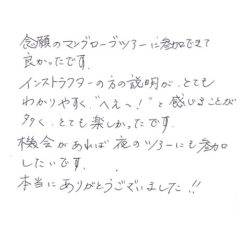 念願のマングローブツアーに参加できて
良かったです。
インストラクターの方の説明が、とても
わかりやすく、"へえ~!"と感じることが
多く、とても楽しかったです。
機会があれば夜のツアーにも参加
したいです。
本当にありがとうございました!!